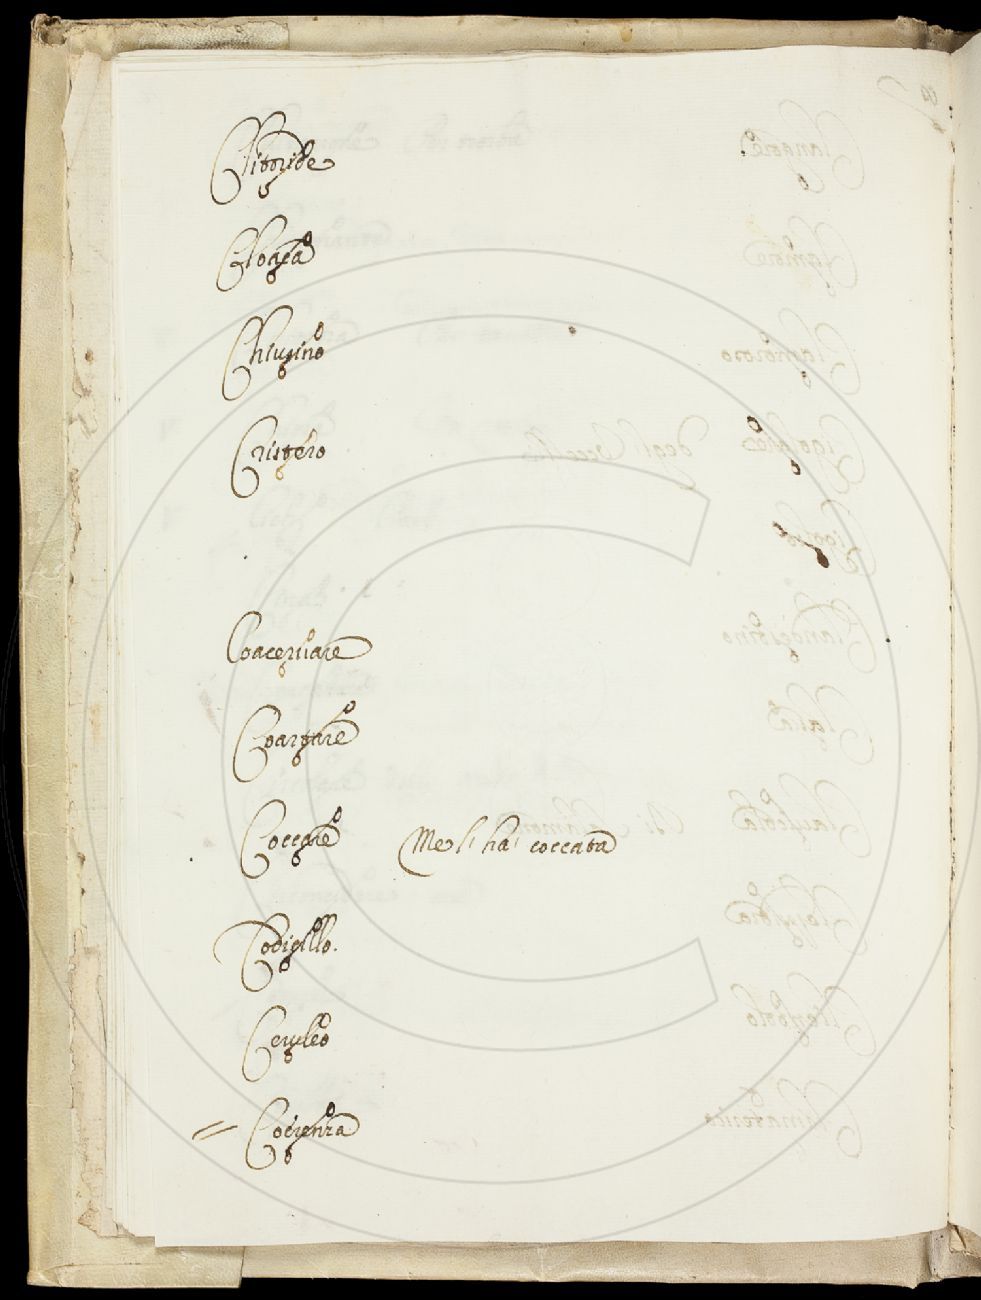 Clitoride
Cloaca
Chiusino
Cristero
Coacervare
Coartare
Coccare Me l' hai coccata
Codicillo.
Ceruleo
= Cocienza